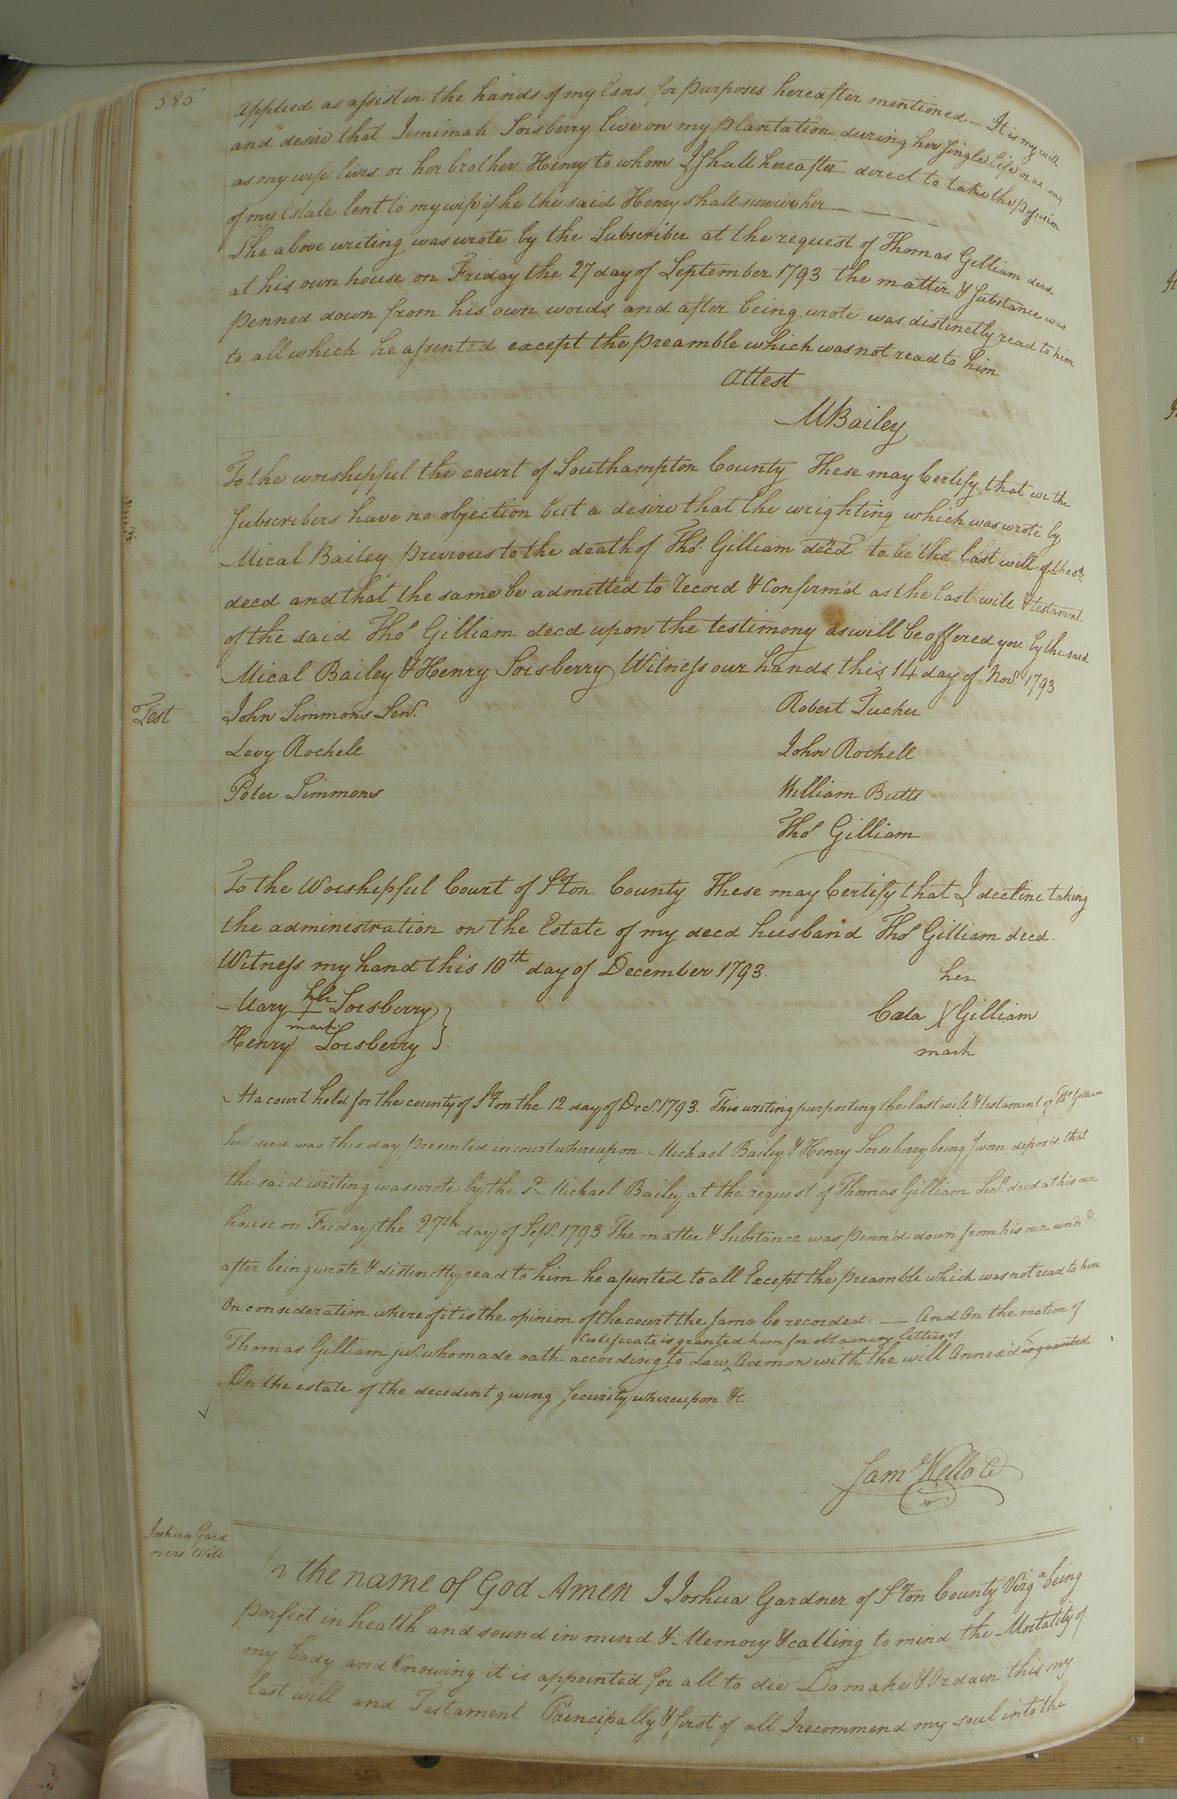 585
applied as assist in the hands of my Exrs for purposes hereafter mentioned — It is my will
and desire that Jemimah Sorsberry live on my plantation during her single life or as long
as my wife lives or her brother Henry to whom I shall hereafter direct to take the possession
of my Estate lent to my wife if he the said Henry shall survive her — — —
The above writing was wrote by the Subscriber at the request of Thomas Gilliam decd
at his own house on Friday the 27 day of September 1793 the matter & Substance was
penned down from his own words and after being wrote was distinctly read to him
to all which he assented except the preamble which was not read to him
Attest
M Bailey
To the worshipful the court of Southampton County These may Certify that we the
Subscribers have no objection but a desire that the wrighting which was wrote by
Mical Bailey previous to the death of Thos. Gilliam decd to be the last will of the sd.
decd and that the same be admitted to record & confirm'd as the last will & testament
of the said Thos Gilliam decd upon the testimony as will be offered you by the said
Mical Bailey & Henry Sorsberry Witness our hands this 14 day of Novr 1793
Test John Simmons Senr. Robert Tucker
Levy Rochell John Rochell
Peter Simmons William Butts
Thos Gilliam
To the Worshipful Court of S°ton County These may Certify that I decline taking
the administration on the Estate of my decd husband Thos Gilliam decd.
Witness my hand this 10th day of December 1793.
her
Mary her + mark Sorsberry } Cala X Gilliam
Henry Sorsberry } mark
At a court held for the county of S°ton the 12 day of Decr. 1793. This writing purporting the last will & testament of Thos Gilliam
Senr decd was this day presented in court whereupon Michael Bailey & Henry Sorseberry being sworn deposed that
the said writing was wrote by the sd. Michael Bailey at the request of Thomas Gilliam Senr. decd at his own
house on Friday the 27th day of Sepr. 1793 The matter & Substance was penn'd down from his own words &
after being wrote & distinctly read to him he assented to all Except the preamble which was not read to him
On consideration whereof it is the opinion of the court the same be recorded. — And On the motion of
Certificate is granted him for obtaining letters of
Thomas Gilliam jur. who made oath according to Law ^ Admon with the will Annex'd is granted
On the estate of the decedent giving Security whereupon &c
Saml Kello C
Joshua Gard
ners Will
In the name of God Amen I Joshua Gardner of S°ton County Virga being
perfect in health and sound in mind & Memory & calling to mind the Mortality of
my body and Knowing it is appointed for all to die Do make & Ordain this my
last will and Testament Principally & first of all I recommend my soul into the